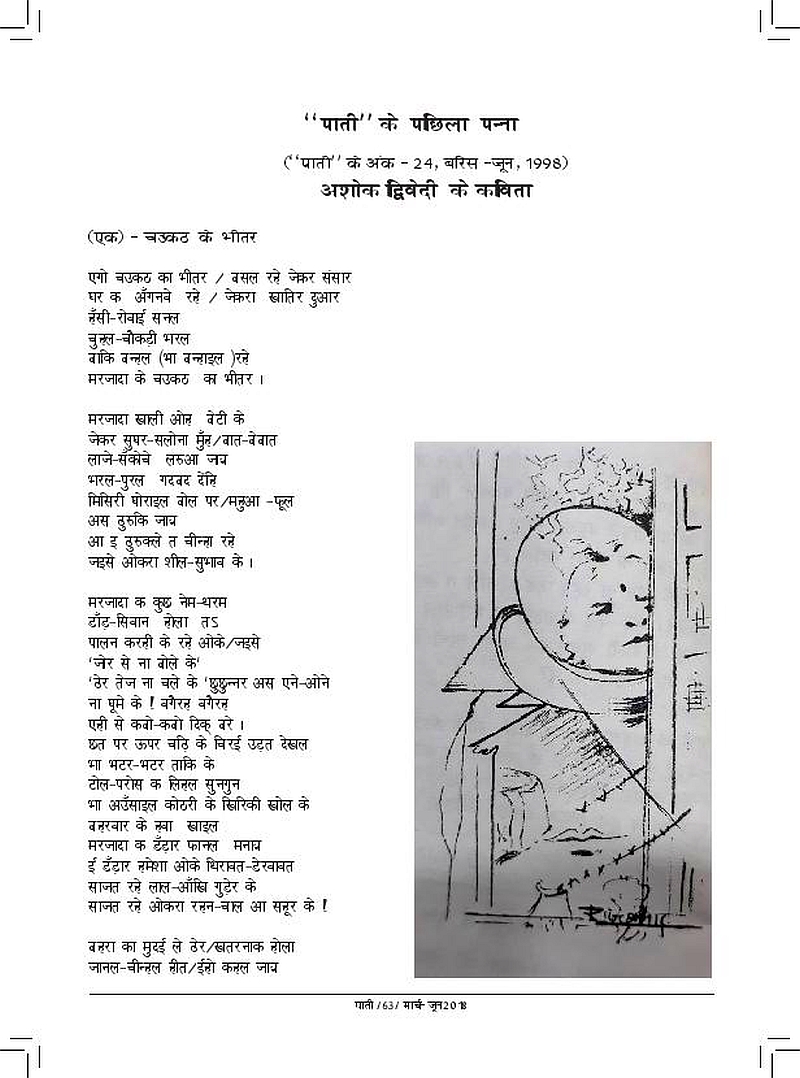 “पाती” के पछिला पन्ना
(“पाती” के अंक - 24, बरिस -जून, 1998)
अशोक द्विवेदी के कविता
(एक) - चउकठ के भीतर
एगो चउकठ का भीतर / बसल रहे जेकर संसार
घर क अँगनवे रहे / जेकरा खातिर दुआर
हँसी-रोवाई सनल
चुहल-चौकड़ी भरल
बाकि बन्हल (भा बन्हाइल )रहे
मरजादा के चउकठ का भीतर ।
मरजादा खाली ओह बेटी के
जेकर सुघर-सलोना मुँह/बात-बेबात
लाजे-सँकोचे लरुआ जाय
भरल-पुरल गदबद देंहि
मिसिरी घोराइल बोल पर/महुआ -फूल
अस ठुरुकि जाय
आ इ ठुरुकले त चीन्हा रहे
जइसे ओकरा शील-सुभाव के ।
मरजादा क कुछ नेम-धरम
डाँड़-सिवान होला तऽ
पालन करही के रहे ओके/जइसे
'जोर से ना बोले के'
'ढेर तेज ना चले के 'छुछुन्नर अस एने-ओने
ना घूमे के ! वगैरह वगैरह
एही से कबो-कबो दिक् बरे ।
छत पर ऊपर चढ़ि के चिरई उड़त देखल
भा भटर-भटर ताकि के
टोल-परोस क लिहल सुनगुन
भा अउँसाइल कोठरी के खिरिकी खोल के
बहरवार के हवा खाइल
मरजादा क डँड़ार फानल मनाय
ई डँड़ार हमेशा ओके थिरावत-डेरवावत
साजत रहे लाल-आँखि गुड़ेर के
साजत रहे ओकरा रहन-चाल आ सहूर के !
बहरा का मुदई ले ढेर/खतरनाक होला
जानल-चीन्हल हीत/ईहो कहल जाय
पाती /63/ मार्च- जून 2018